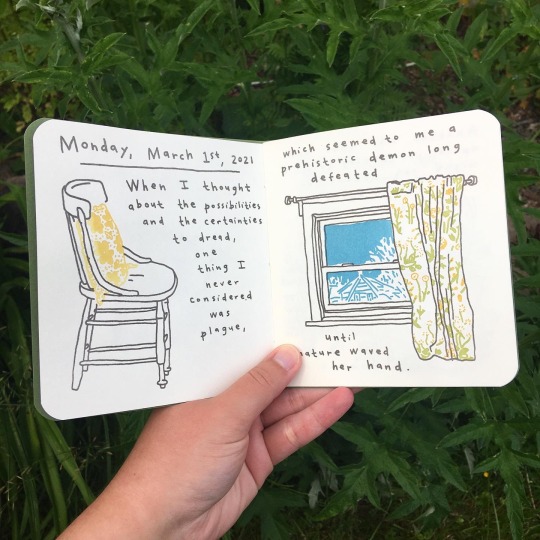 Monday, March 1st, 2021
When I thought
about the possibilities
and the certainties
to dread,
one
thing I
never
considered
was
plague,
which seemed to me a
prehistoric demon long
defeated
until
nature waved
her hand.